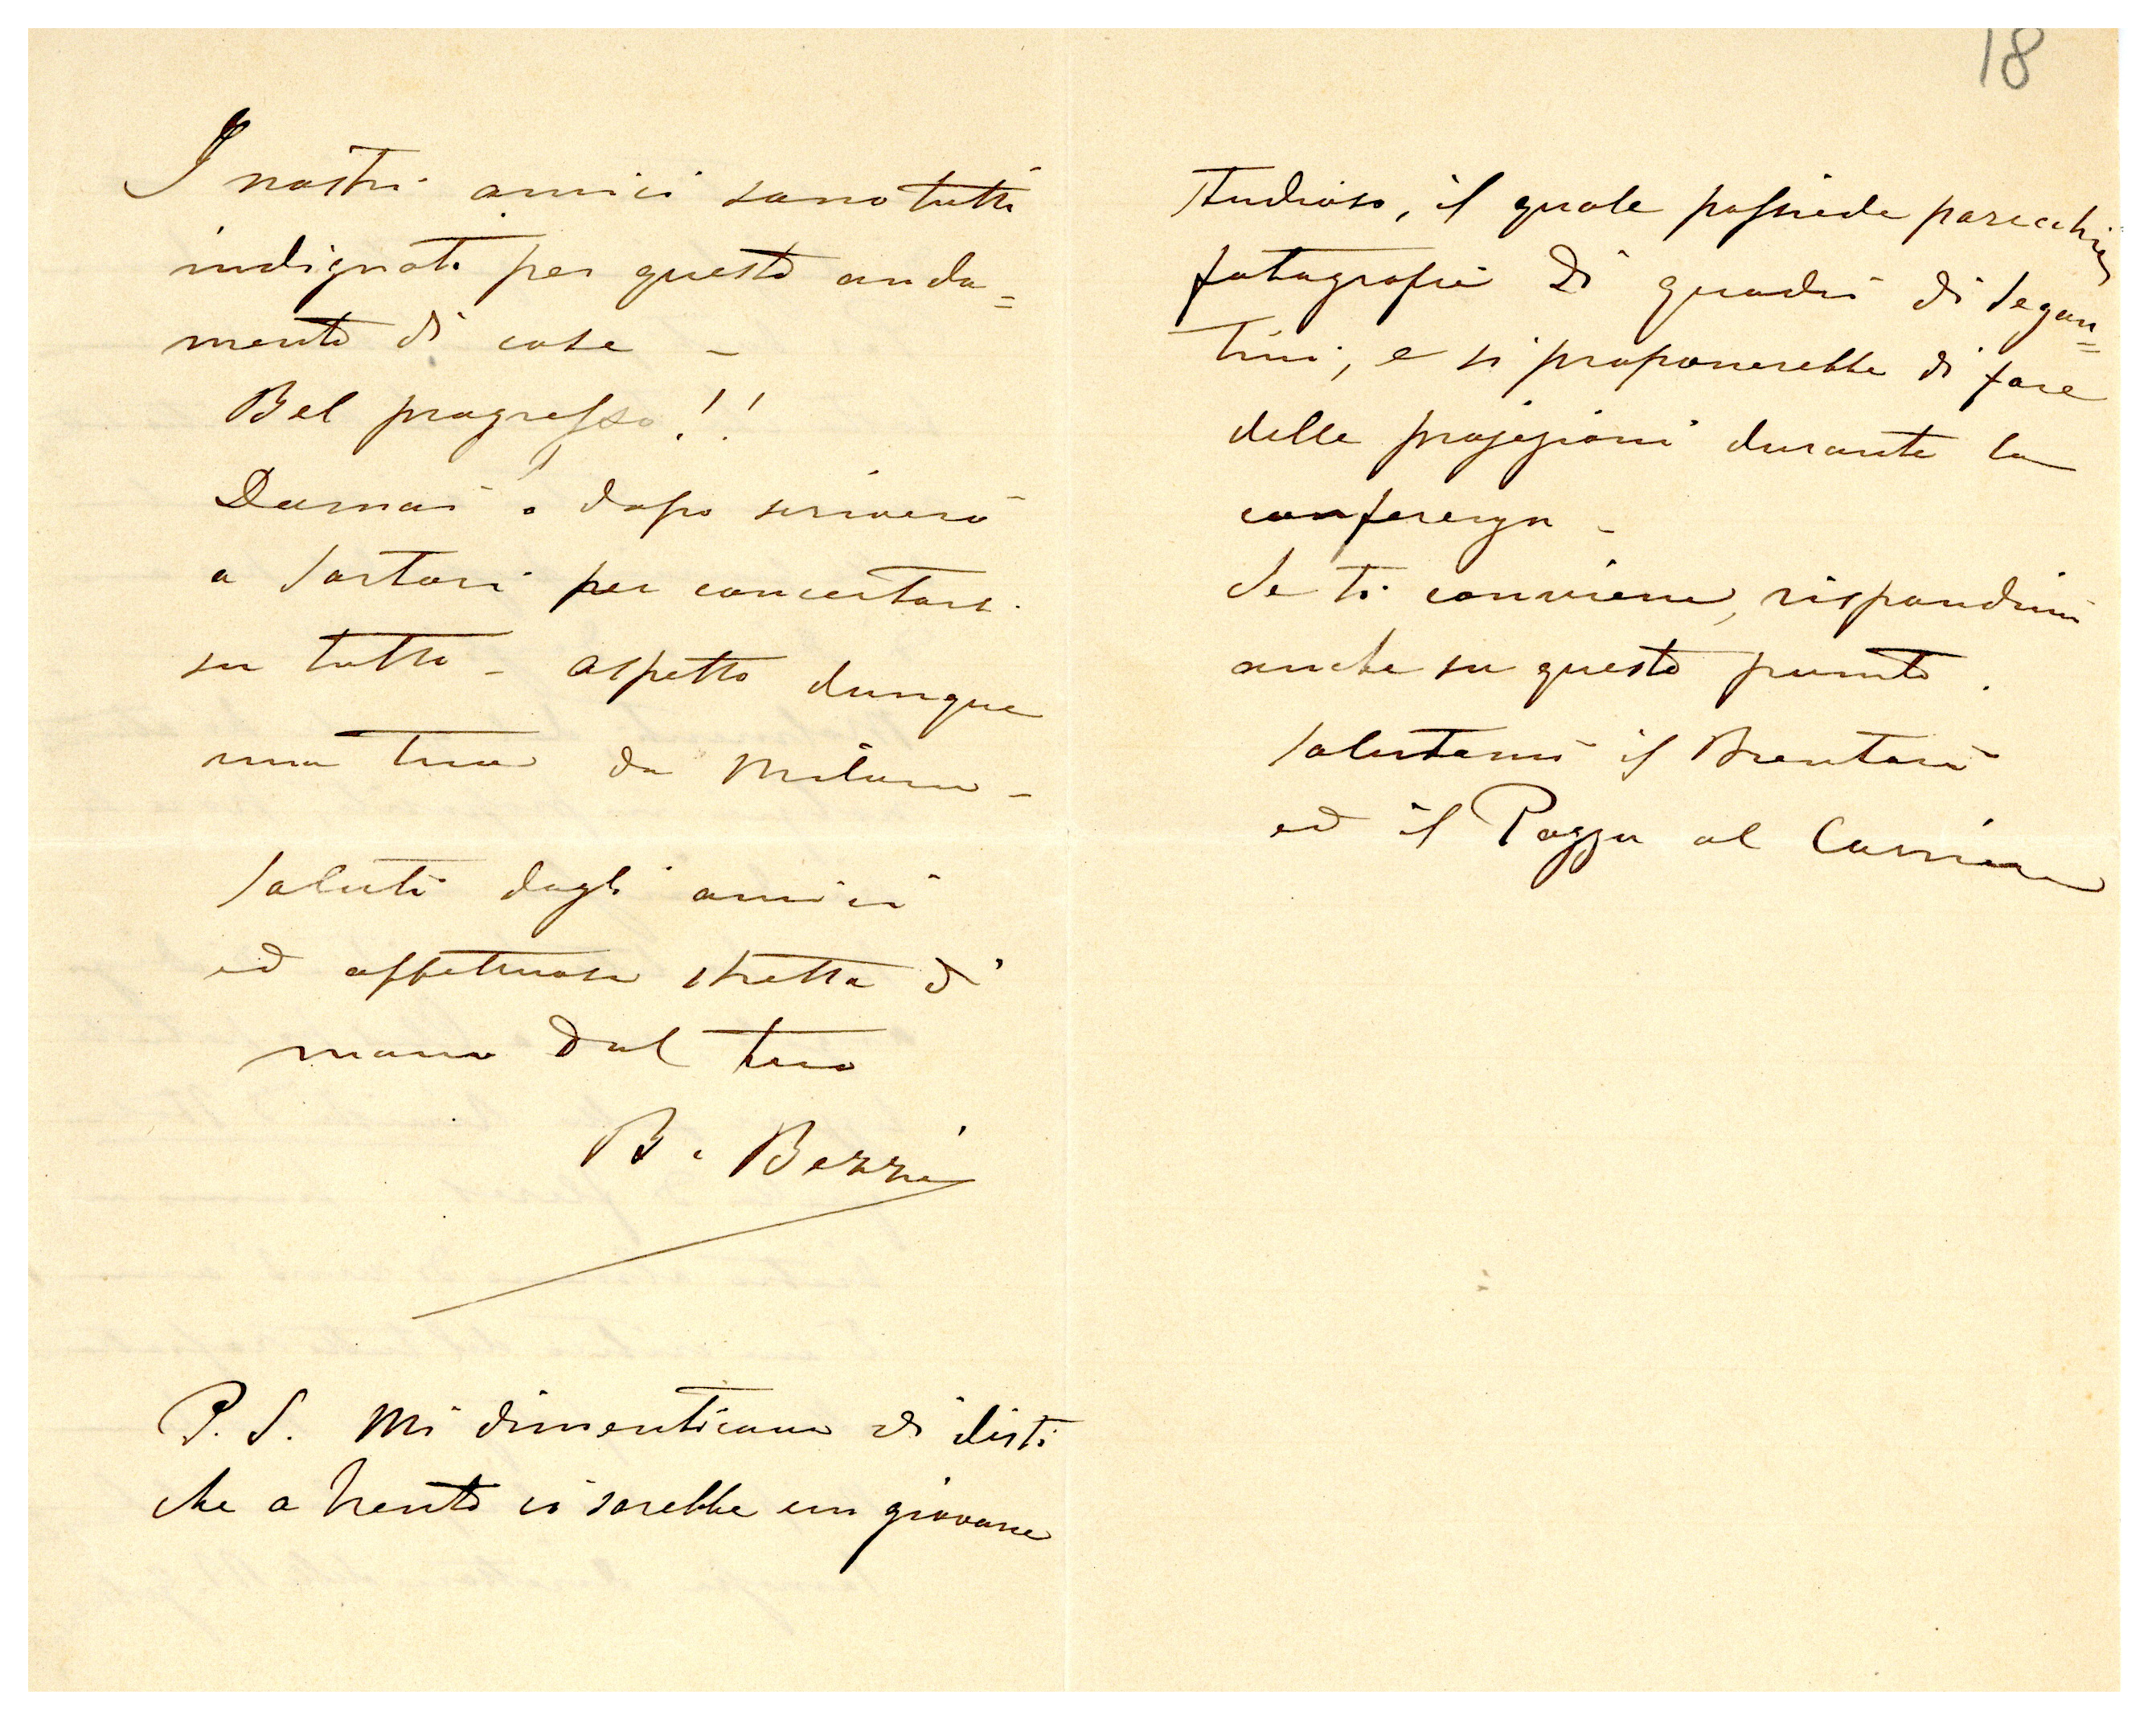 I nostri amici sono tutti
indignati per questo anda=
mento di cose –
Bel progresso!!
Domani o dopo scriverò
a Sartori per concertarsi
su tutto – aspetto dunque
una tua da Milano –
Saluti dagli amici
ed affettuosa stretta di
mano dal tuo
B. Bezzi
P. S. Mi dimenticavo di dirti
che a Trento ci sarebbe un giovane
18
studioso, il quale possiede parecchie
fotografie di quadri di Segan=
tini, e si proponerebbe di fare
delle projezioni durante la
conferenza –
Se ti conviene, rispondimi
anche su questo punto.
Salutami il Brentari
ed il Pozza al Corriere